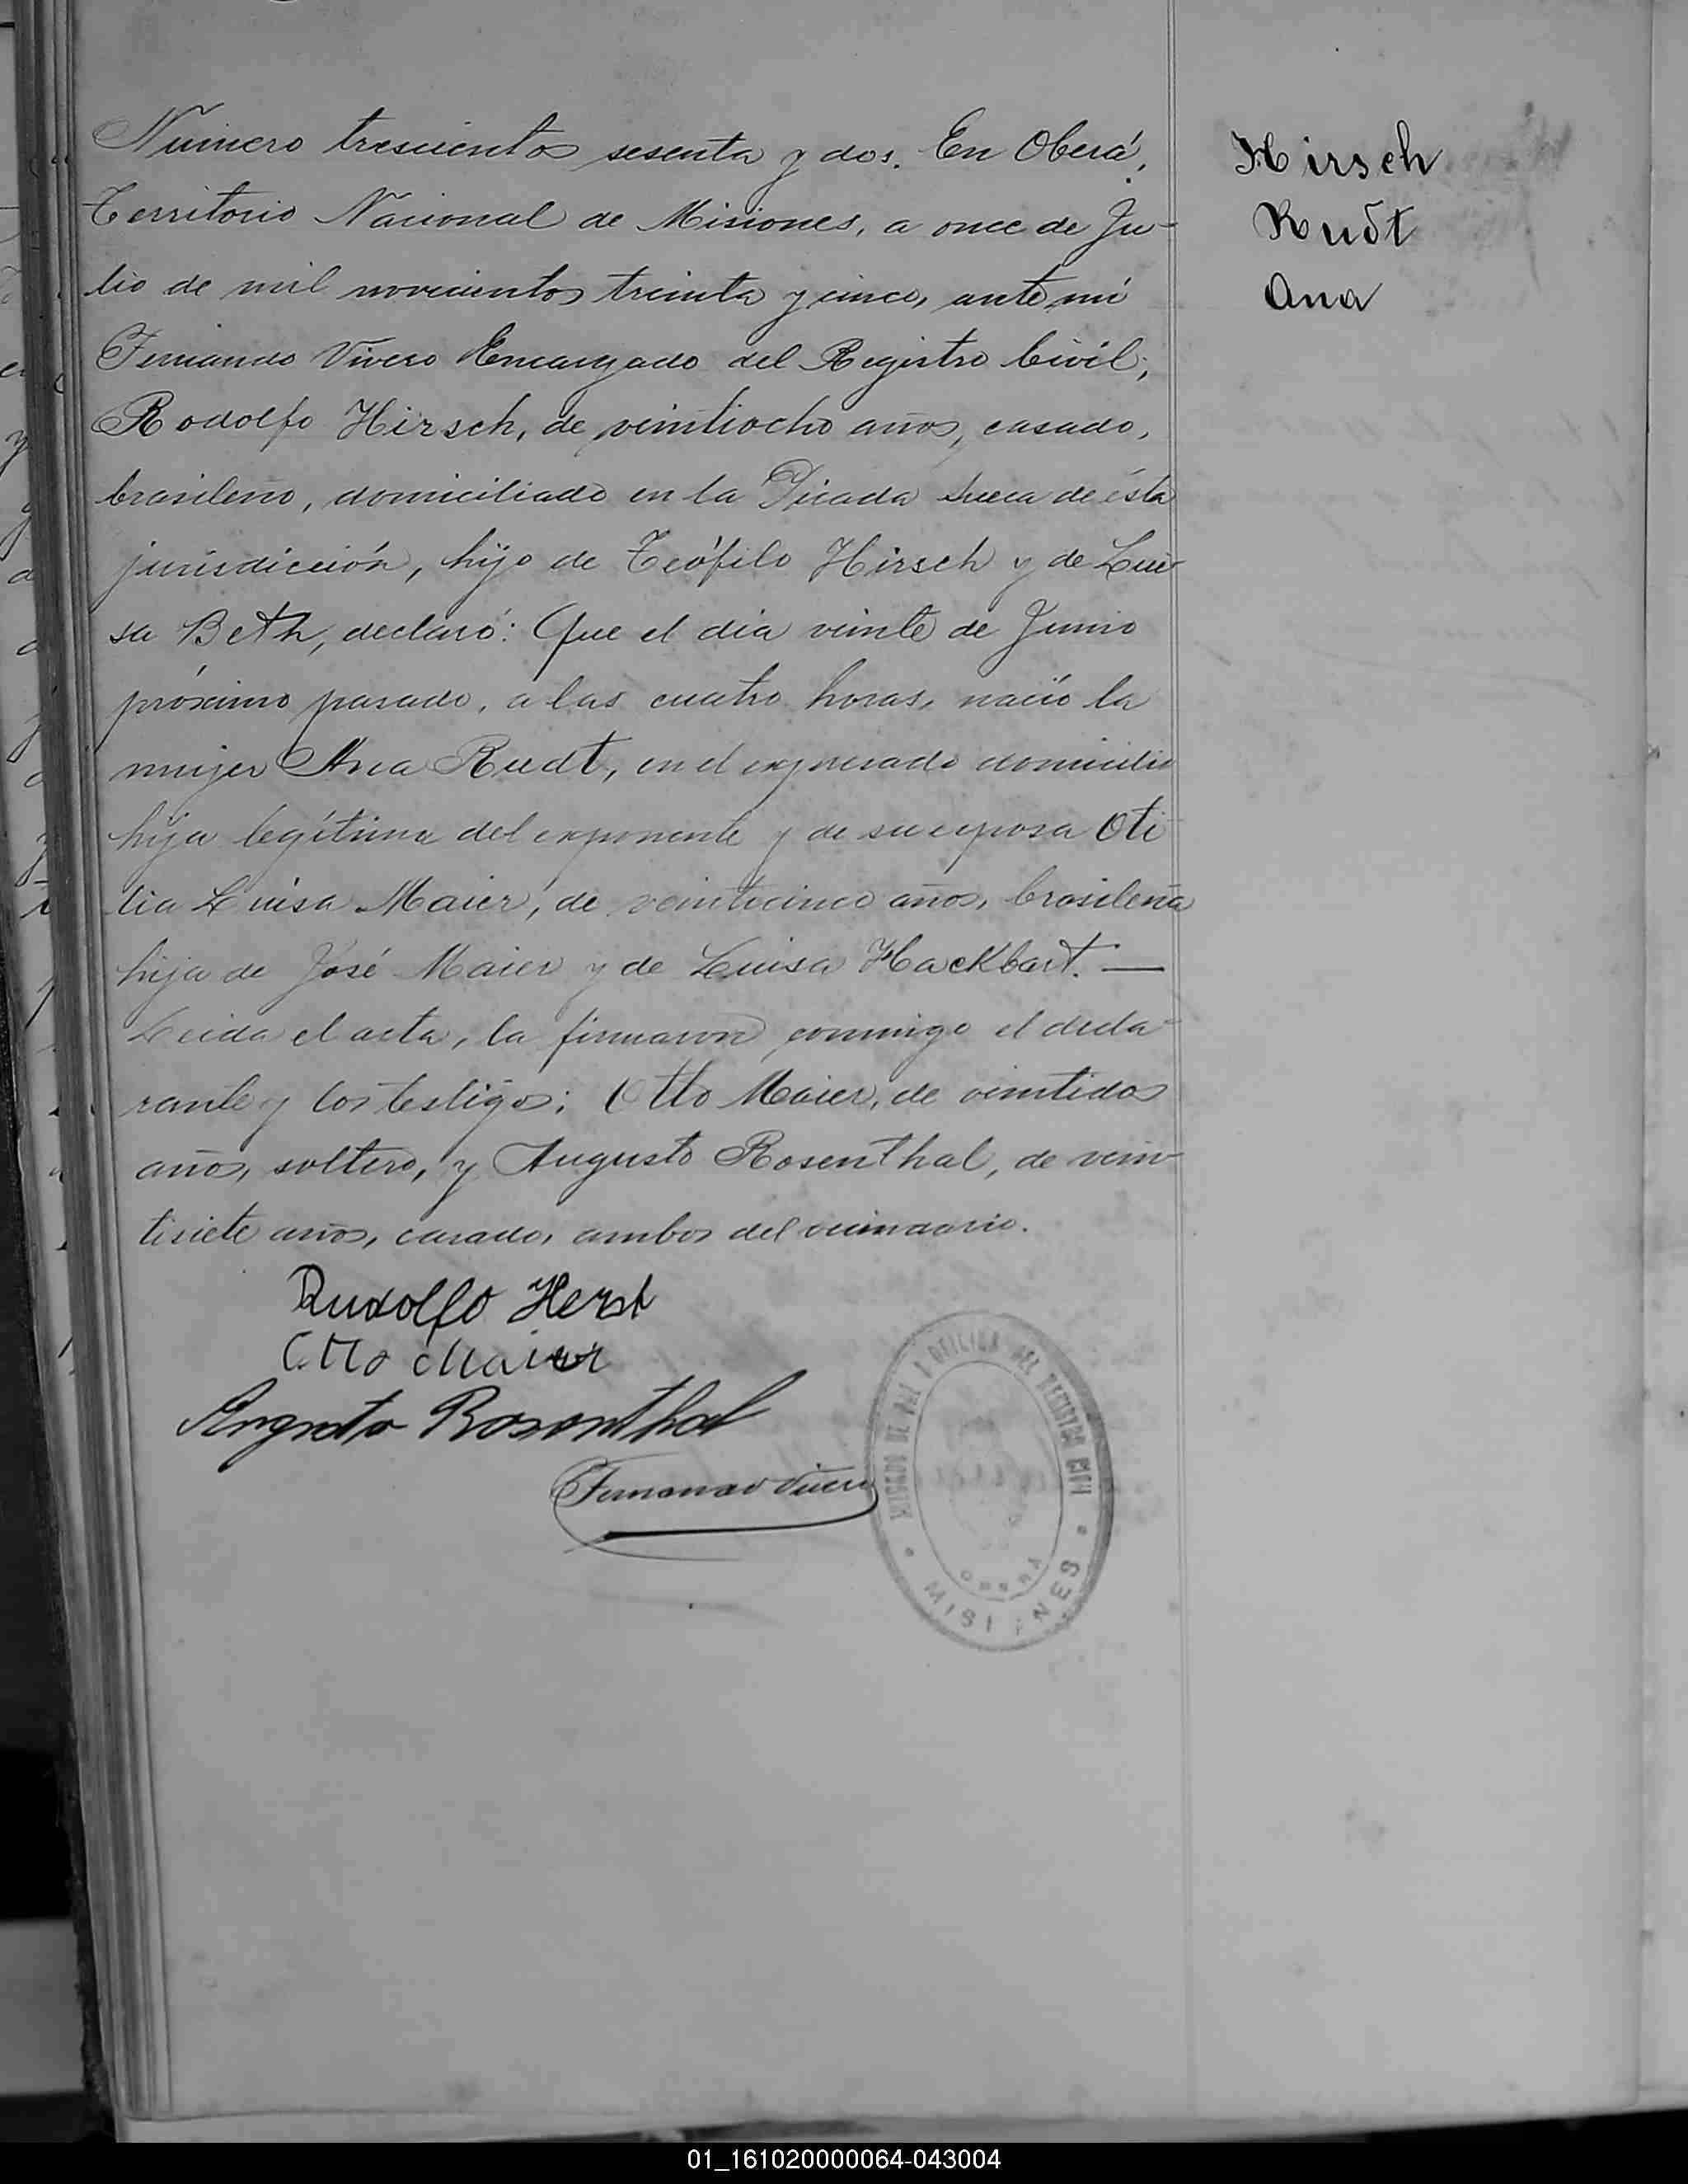 Número trescientos sesenta y dos. En Oberá,
Territorio Nacional de Misiones, a once de Ju-
lio de mil novecientos treinta y cinco, ante mí
Fernando Vivero Encargado del Registro Civil;
Rodolfo Hirsch, de veintiocho años, casado,
brasileño, domiciliado en la Picada Sueca de ésta
jurisdicción, hijo de Teófilo Hirsch y de Lui-
sa Beth, declaró: Que el día veinte de Junio
próximo pasado, a las cuatro horas, nació la
mujer Ana Rudt, en el expresado domicilio
hija legítima del exponente y de su esposa Oti
lia Luisa Maier, de veinticinco años, brasileña
hija de José Maier y de Luisa Hackbart. —
Leida el acta, la firmaron conmigo el decla-
rante y los testigos: Otto Maier, de veintidos
años, soltero, y Augusto Rosenthal, de vein-
tisiete años, casado, ambos del vecindario.
Rudolfo Herst
Otto Maier
Augusto Rosenthal
Fernando Vivero
JUZGADO DE PAZ Y OFICINA DEL REGISTRO CIVIL
OBERÁ
MISIONES
Hirsch
Rudt
Ana
01_161020000064-043004